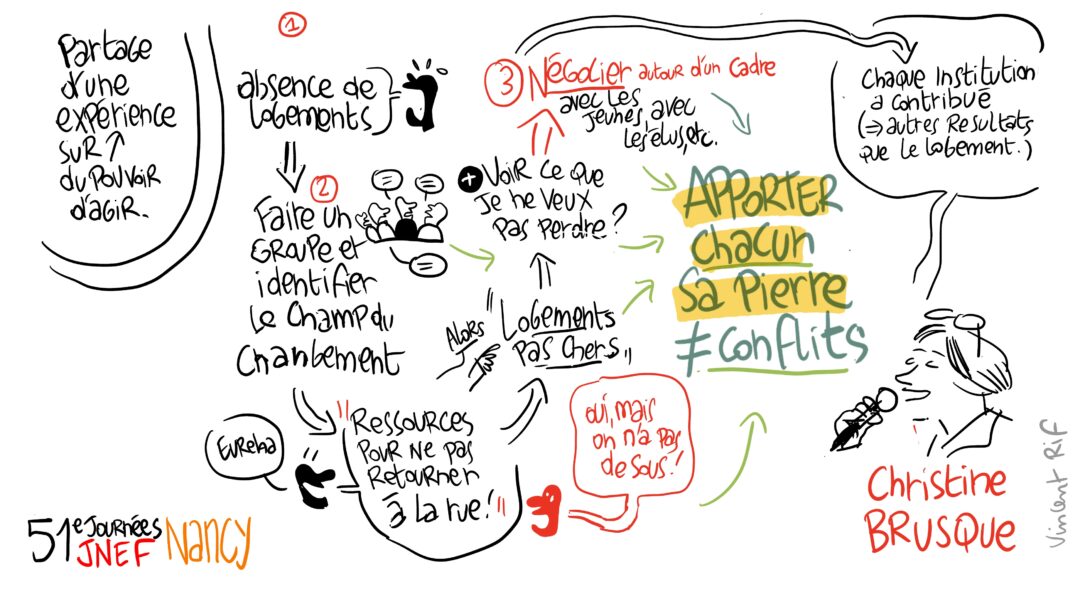 Partage
d'une
expérience
sur
du pouvoir
d'agir.
1
absence de
logements
2
Faire un
groupe et
identifier
le champ du
changement
Eureka
"Ressources
pour ne pas
retourner
à la rue!"
oui, mais
on n'a pas
de sous!
Alors
"Logements
pas chers"
+ Voir ce que
je ne veux
pas perdre?
3 Négocier autour d'un cadre
avec les
jeunes, avec
les élus, etc.
APPORTER
chacun
sa pierre
≠ conflits
Chaque institution
a contribué
(⇒ autres résultats
que le logement.)
Christine
BRUSQUE
Vincent Rif
51e Journées
JNEF Nancy